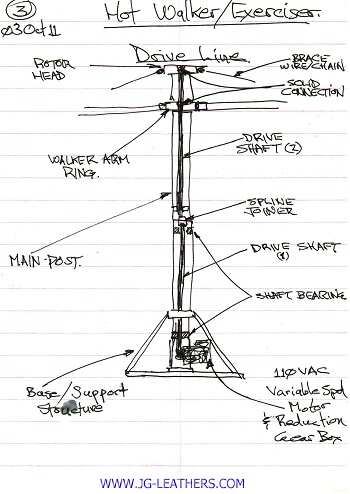 3
Hot Walker/Exerciser.
03Oct11
Drive Line.
ROTOR
HEAD
BRACE
WIRE/CHAIN
SOLID
CONNECTION
WALKER ARM
RING.
DRIVE
SHAFT (2)
SPLINE
JOINER
MAIN POST.
DRIVE SHAFT
(1)
SHAFT BEARING
Base/Support
Structure
110VAC
Variable Spd
Motor
& Reduction
Gear Box
WWW.JG-LEATHERS.COM